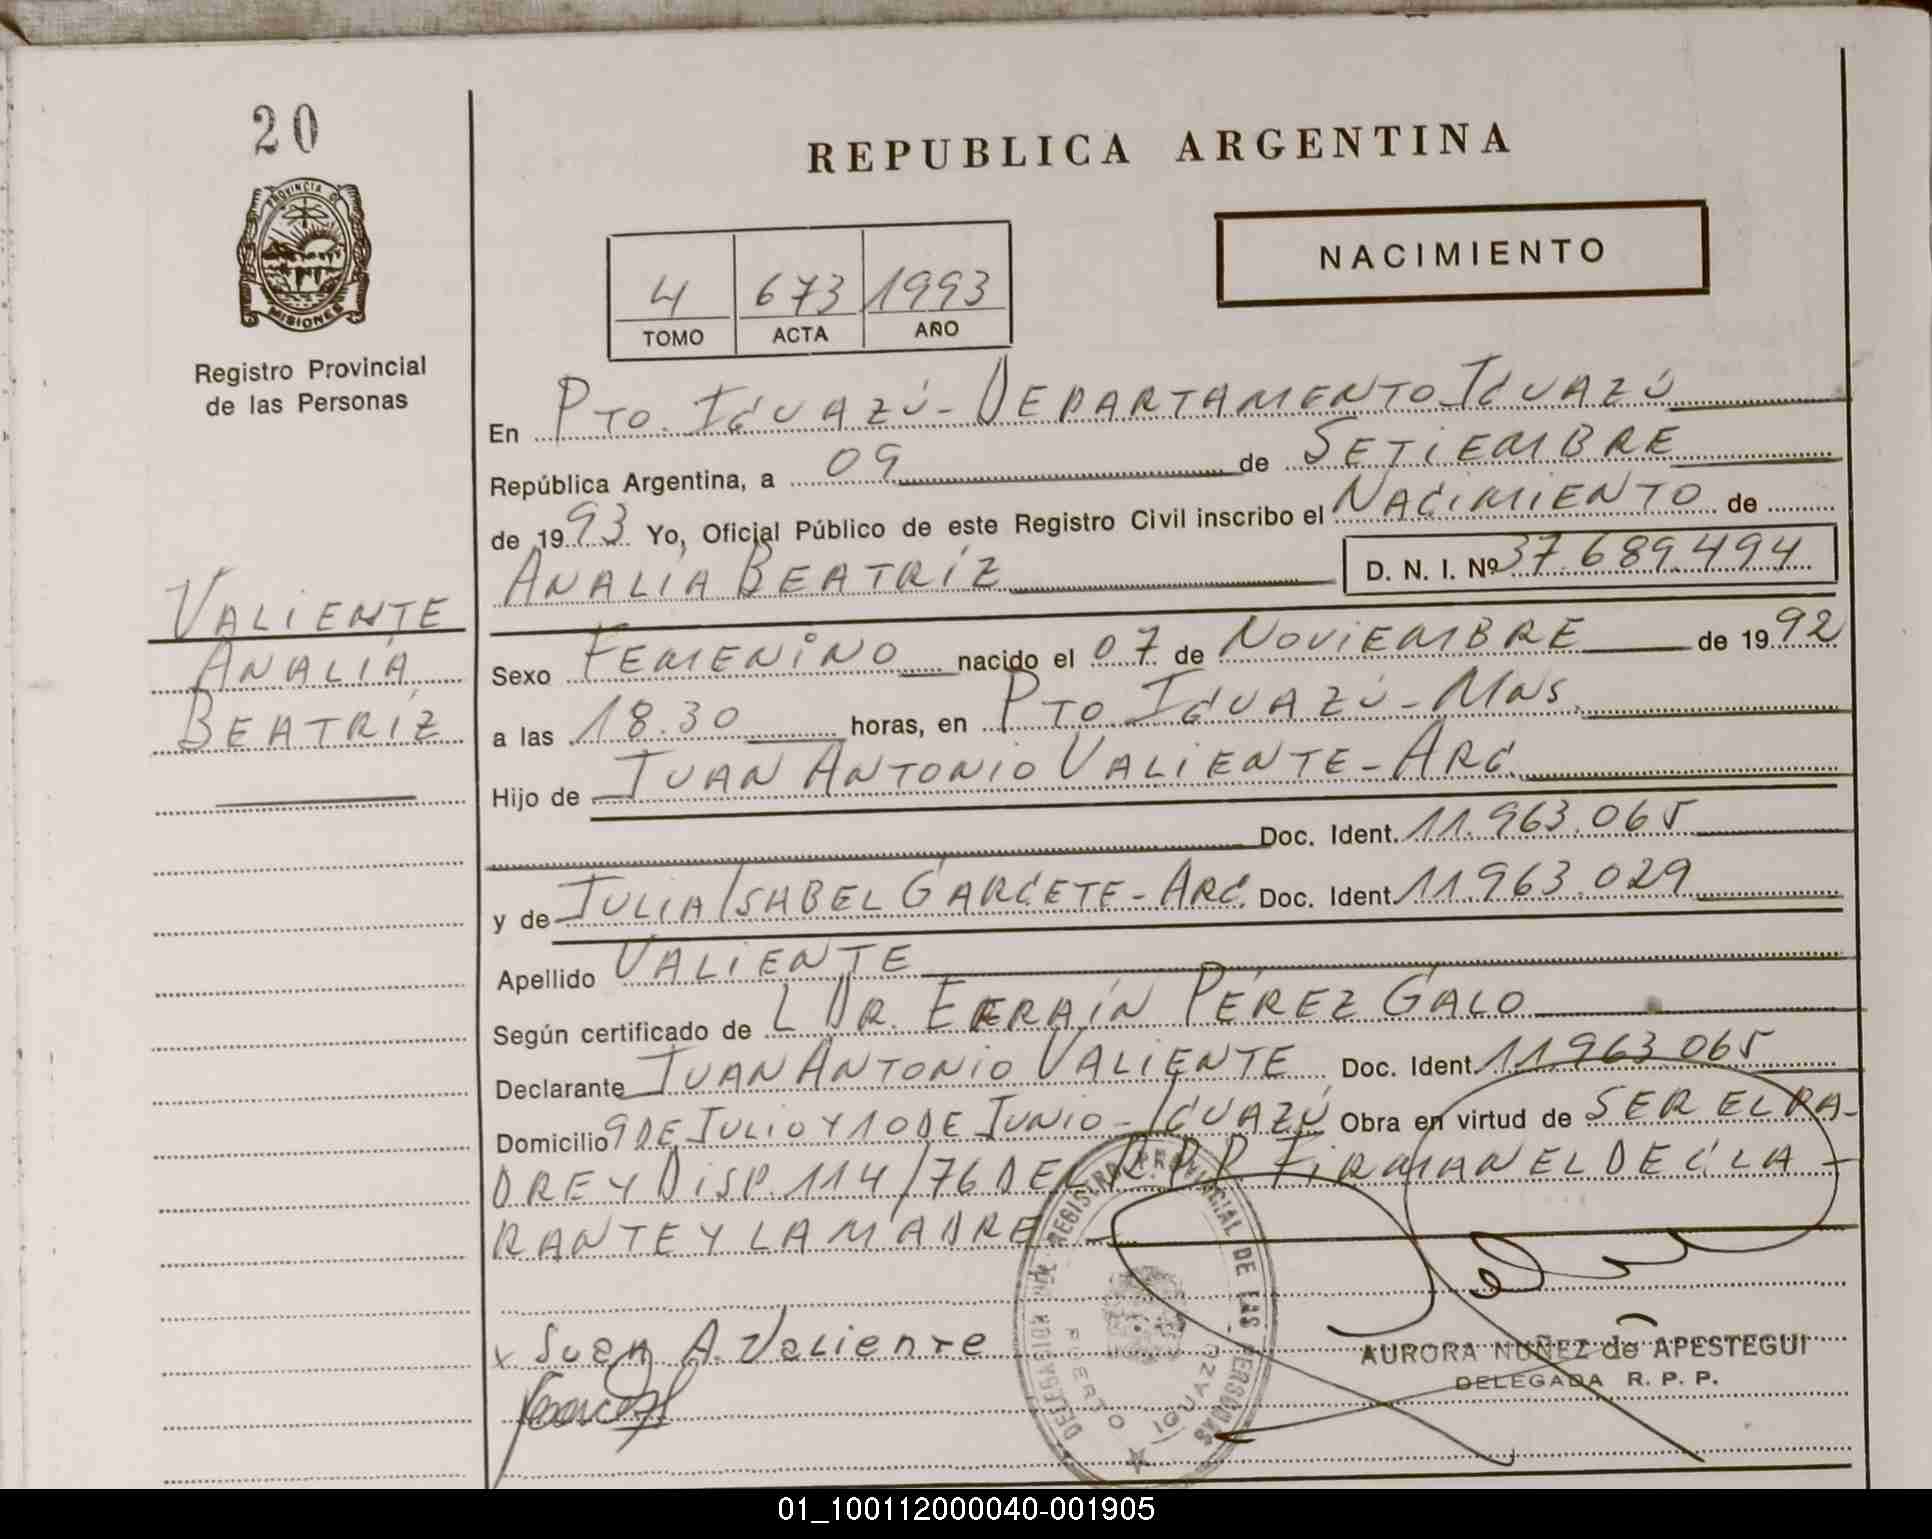 20
PROVINCIA DE
MISIONES
Registro Provincial
de las Personas
VALIENTE
ANALIA
BEATRÍZ
REPUBLICA ARGENTINA
NACIMIENTO
4 673 1993
TOMO ACTA AÑO
En PTO. IGUAZÚ - DEPARTAMENTO IGUAZÚ
República Argentina, a 09 de SETIEMBRE
de 1993 Yo, Oficial Público de este Registro Civil inscribo el NACIMIENTO de
ANALÍA BEATRÍZ D. N. I. Nº 37.689.494
Sexo FEMENINO nacido el 07 de NOVIEMBRE de 1992
a las 18.30 horas, en PTO. IGUAZÚ - MNS.
Hijo de JUAN ANTONIO VALIENTE - ARG.
Doc. Ident. 11.963.065
y de JULIA ISABEL GARCETE - ARG. Doc. Ident. 11.963.029
Apellido VALIENTE
Según certificado de L DR. EFRAÍN PÉREZ GALO
Declarante JUAN ANTONIO VALIENTE Doc. Ident. 11.963.065
Domicilio 9 DE JULIO Y 10 DE JUNIO - IGUAZÚ Obra en virtud de SER EL PA-
DRE Y DISP. 114/76 DEL R.P.P. FIRMAN EL DECLA-
RANTE Y LA MADRE -
x Juan A. Valiente
REGISTRO PROVINCIAL DE LAS PERSONAS
DELEGACION
PUERTO IGUAZU
AURORA NUÑEZ de APESTEGUI
DELEGADA R. P. P.
01_100112000040-001905